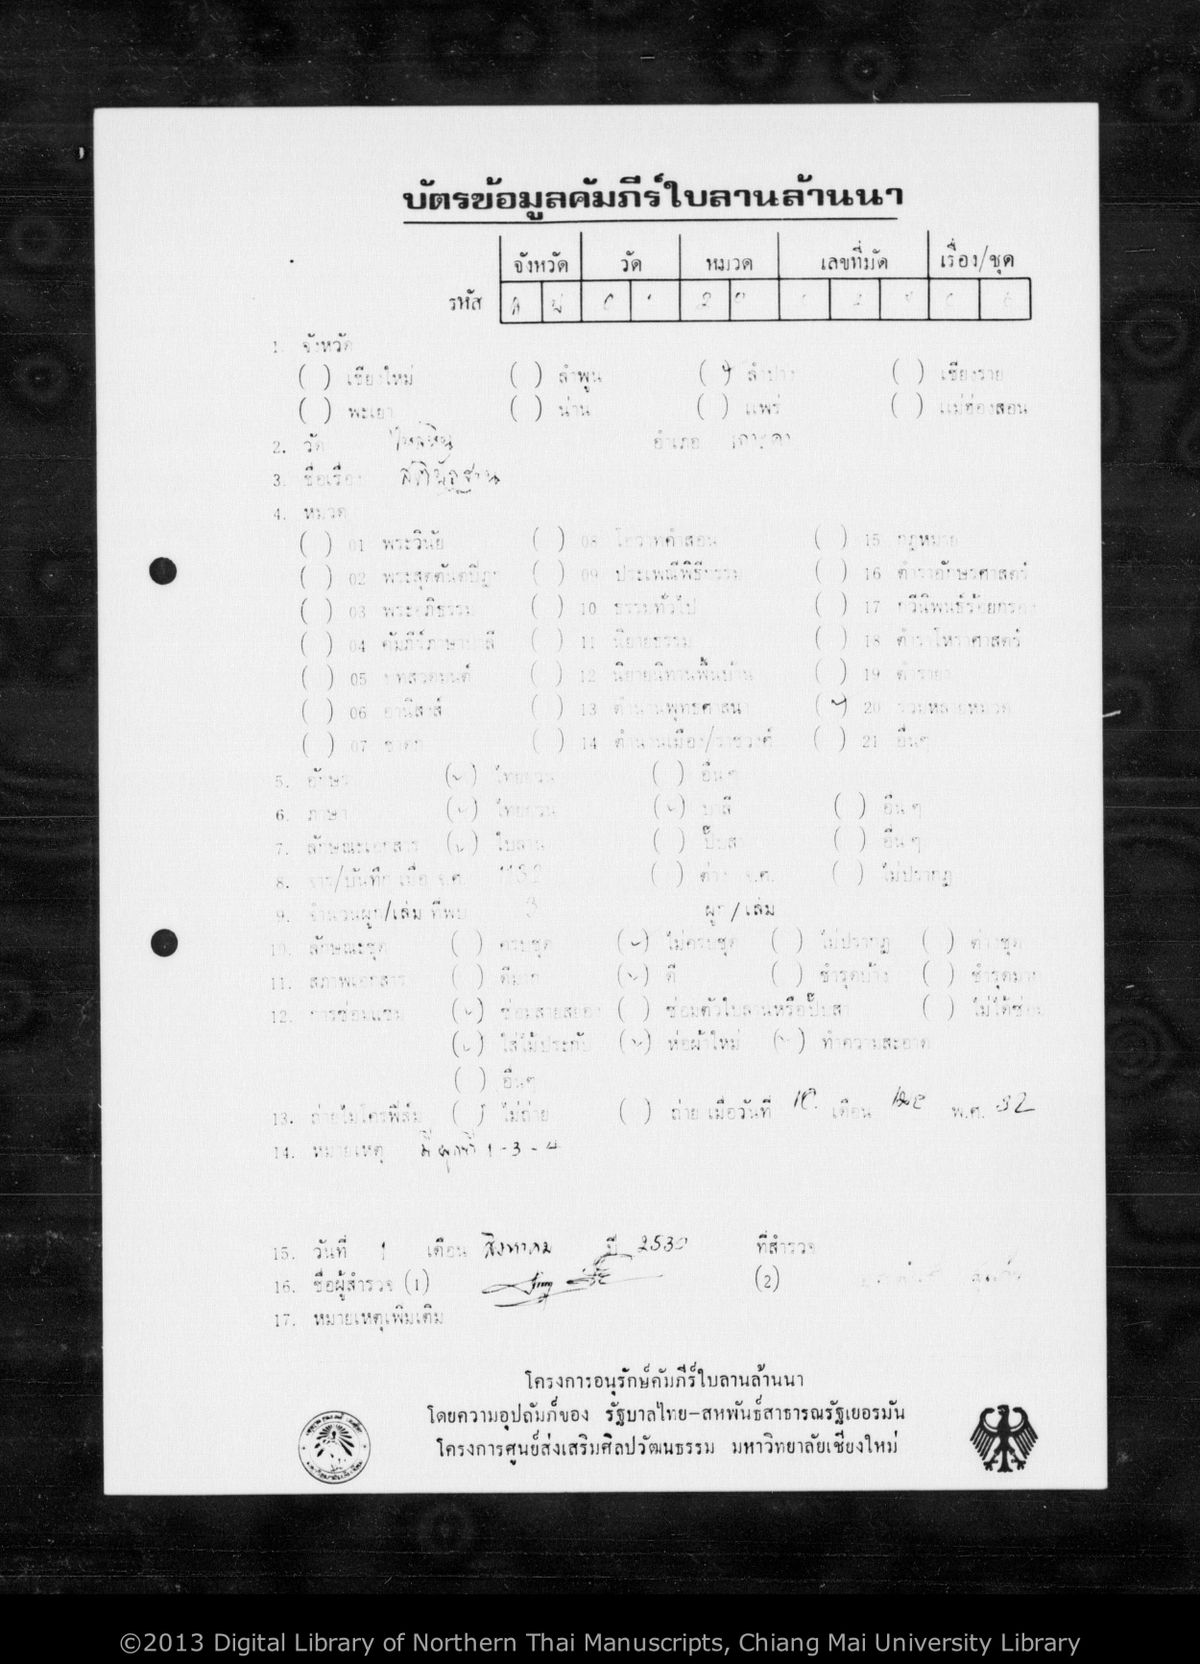 บัตรข้อมูลคัมภีร์ใบลานล้านนา
จังหวัด วัด หมวด เลขที่มัด เรื่อง/ชุด
รหัส
1. จังหวัด
( ) เชียงใหม่ ( ) ลำพูน (✓) ลำปาง ( ) เชียงราย
( ) พะเยา ( ) น่าน ( ) แพร่ ( ) แม่ฮ่องสอน
2. วัด ไหล่หิน อำเภอ เกาะคา
3. ชื่อเรื่อง สติปัฏฐาน
4. หมวด
( ) 01 พระวินัย ( ) 08 โอวาทคำสอน ( ) 15 กฎหมาย
( ) 02 พระสุตตันตปิฎก ( ) 09 ประเพณีพิธีกรรม ( ) 16 ตำราอักษรศาสตร์
( ) 03 พระอภิธรรม ( ) 10 ธรรมทั่วไป ( ) 17 กวีนิพนธ์ร้อยกรอง
( ) 04 คัมภีร์ภาษาบาลี ( ) 11 นิยายธรรม ( ) 18 ตำราโหราศาสตร์
( ) 05 บทสวดมนต์ ( ) 12 นิยายนิทานพื้นบ้าน ( ) 19 ตำรายา
( ) 06 อานิสงส์ ( ) 13 ตำนานพุทธศาสนา (✓) 20 รวมหลายหมวด
( ) 07 ชาดก ( ) 14 ตำนานเมือง/ราชวงศ์ ( ) 21 อื่นๆ
5. อักษร (✓) ไทยยวน ( ) อื่นๆ
6. ภาษา (✓) ไทยยวน (✓) บาลี ( ) อื่นๆ
7. ลักษณะเอกสาร (✓) ใบลาน ( ) ปั๊บสา ( ) อื่นๆ
8. จาร/บันทึก เมื่อ จ.ศ. ( ) ต่าง จ.ศ. ( ) ไม่ปรากฏ
9. จำนวนผูก/เล่ม ที่พบ 3 ผูก/เล่ม
10. ลักษณะชุด ( ) ครบชุด (✓) ไม่ครบชุด ( ) ไม่ปรากฏ ( ) ต่างชุด
11. สภาพเอกสาร ( ) ดีมาก (✓) ดี ( ) ชำรุดบ้าง ( ) ชำรุดมาก
12. การซ่อมแซม (✓) ซ่อมสายสยอง ( ) ซ่อมตัวใบลานหรือปั๊บสา ( ) ไม่ได้ซ่อม
(✓) ใส่ไม้ประกับ (✓) ห่อผ้าใหม่ (✓) ทำความสะอาด
( ) อื่นๆ
13. ถ่ายไมโครฟิล์ม ( ) ไม่ถ่าย ( ) ถ่าย เมื่อวันที่ เดือน พ.ศ. 32
14. หมายเหตุ มีผูกที่ 1-3-4
15. วันที่ 1 เดือน สิงหาคม ปี 2530 ที่สำรวจ
16. ชื่อผู้สำรวจ (1) (2)
17. หมายเหตุเพิ่มเติม
โครงการอนุรักษ์คัมภีร์ใบลานล้านนา
โดยความอุปถัมภ์ของ รัฐบาลไทย-สหพันธ์สาธารณรัฐเยอรมัน
โครงการศูนย์ส่งเสริมศิลปวัฒนธรรม มหาวิทยาลัยเชียงใหม่
©2013 Digital Library of Northern Thai Manuscripts, Chiang Mai University Library